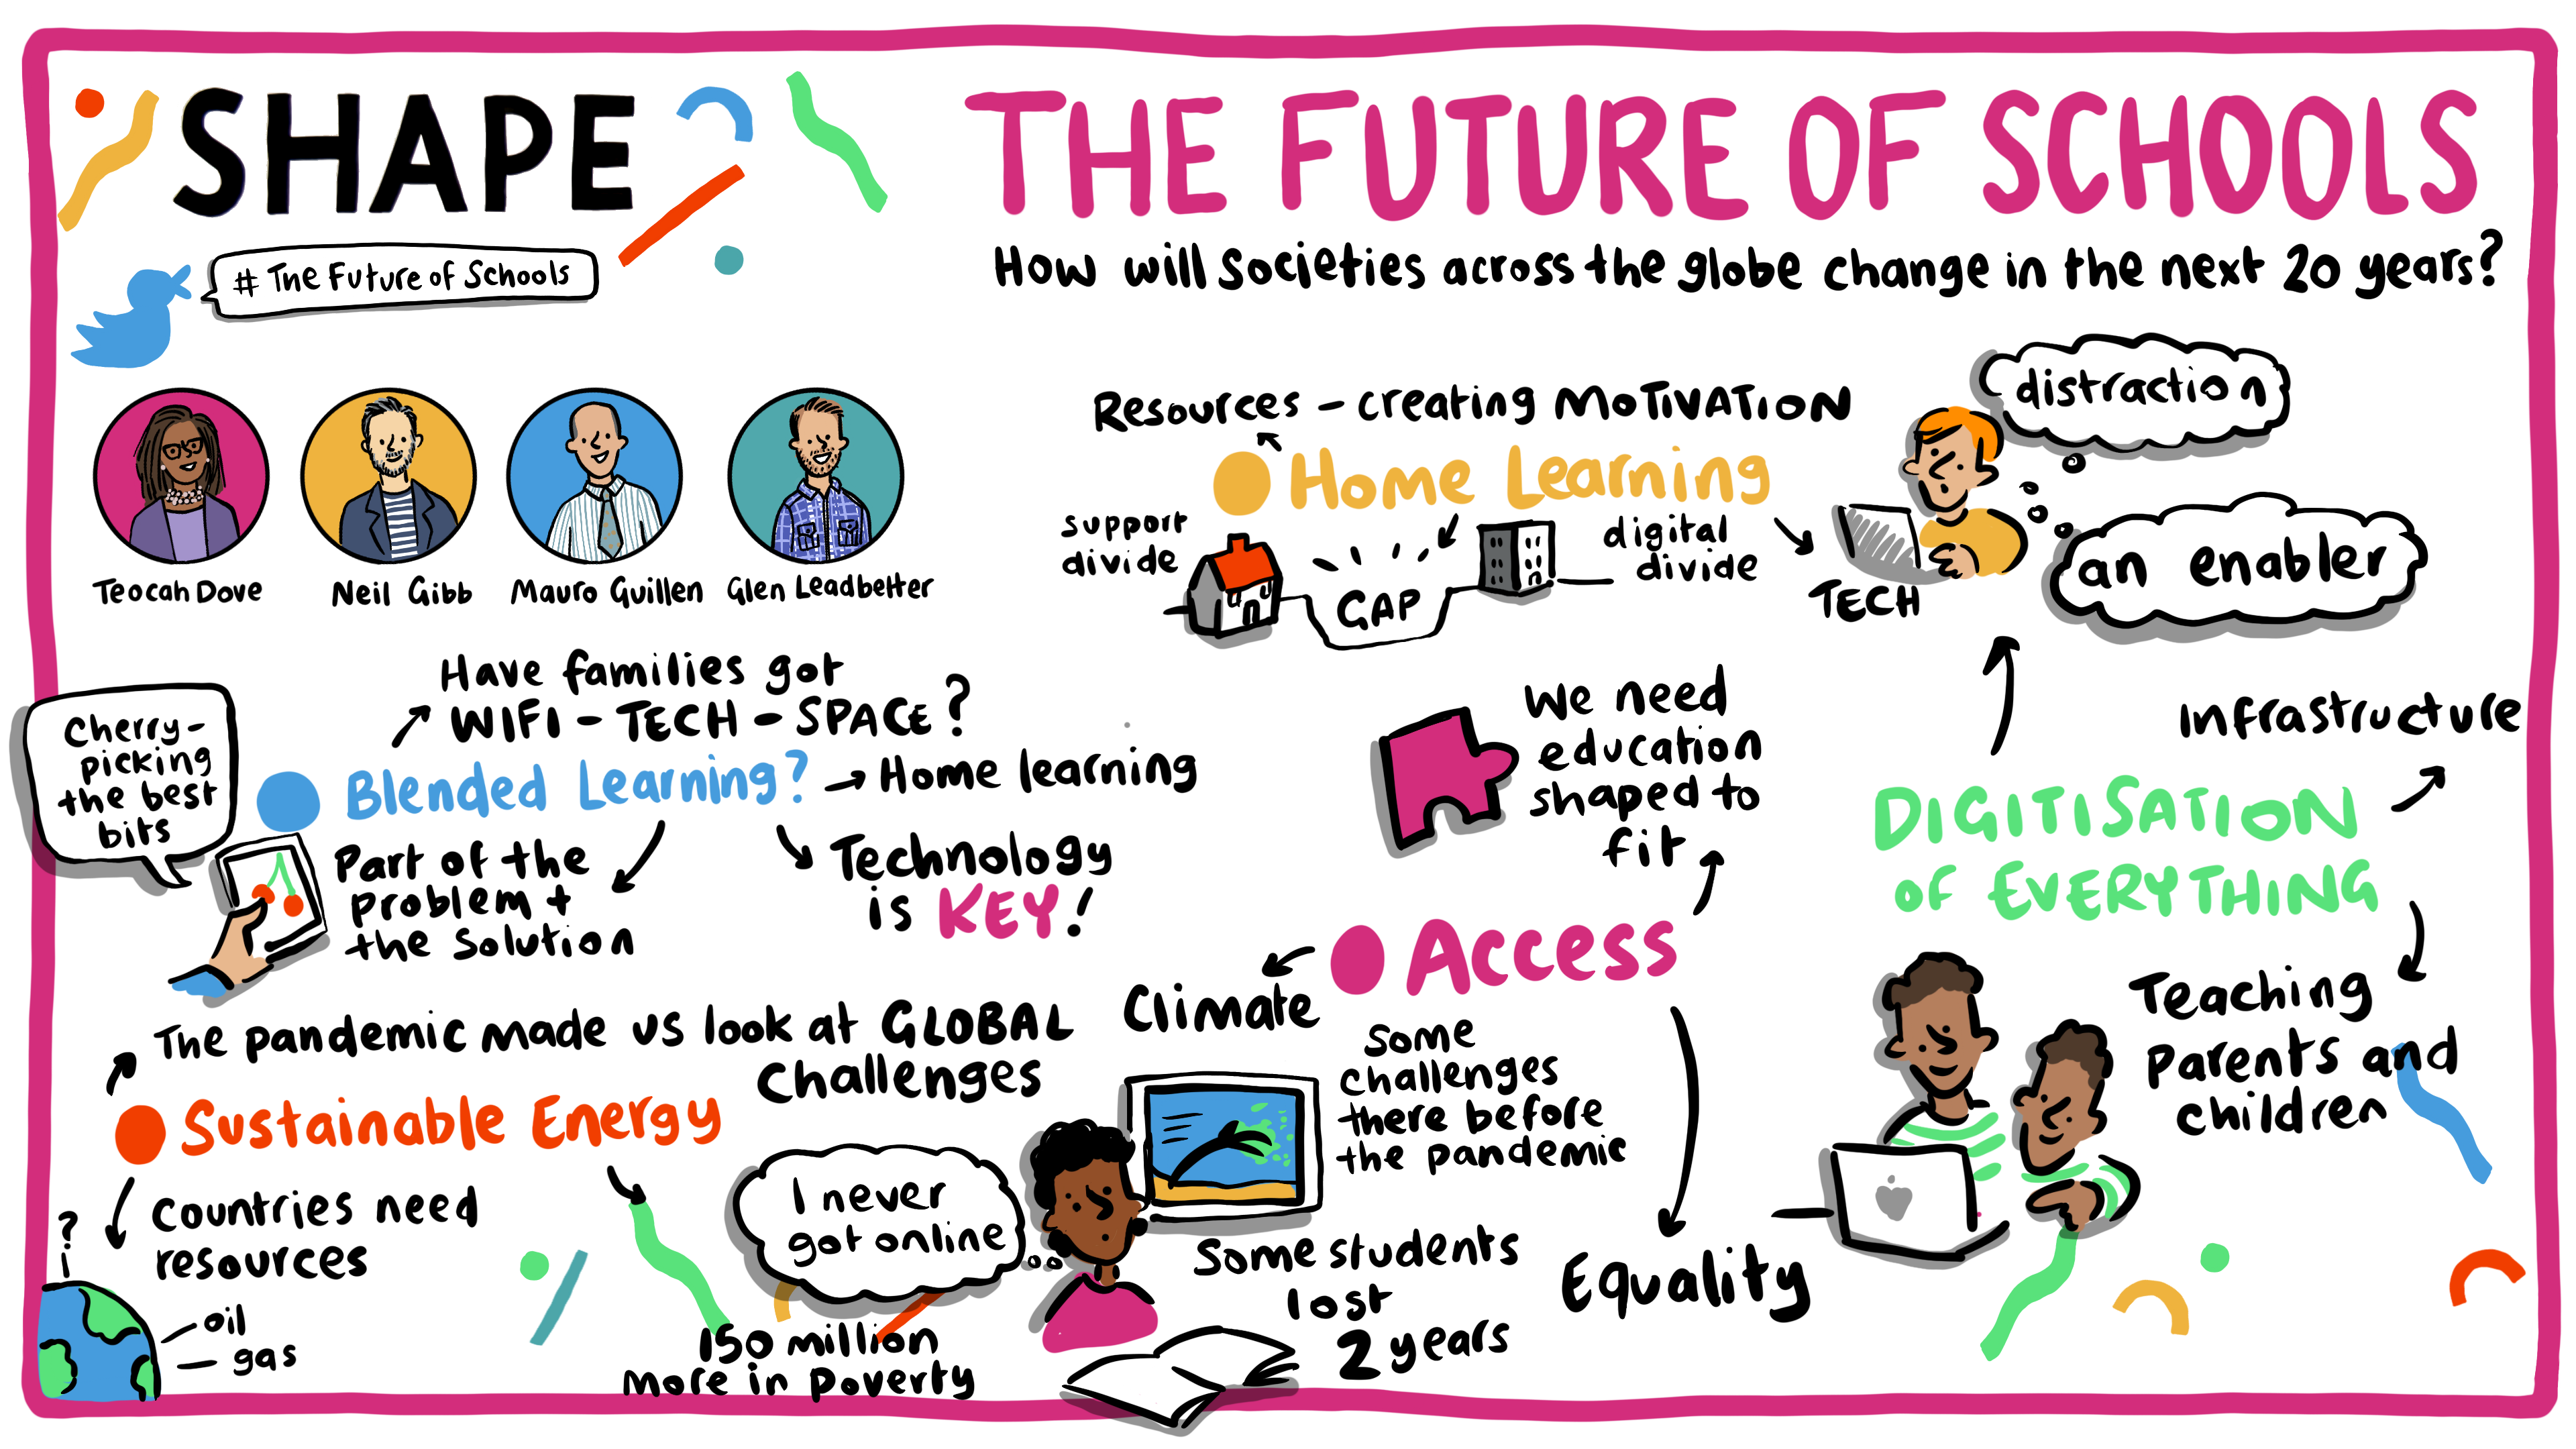 SHAPE
# The Future of Schools
THE FUTURE OF SCHOOLS
How will societies across the globe change in the next 20 years?
Teocah Dove
Neil Gibb
Mauro Guillen
Glen Leadbetter
Resources - creating MOTIVATION
Home Learning
support
divide
GAP
digital
divide
TECH
distraction
an enabler
Have families got
WIFI - TECH - SPACE?
Cherry-
picking
the best
bits
Blended Learning?
Home learning
Part of the
problem +
the solution
Technology
is KEY!
We need
education
shaped to
fit
Infrastructure
DIGITISATION
OF EVERYTHING
Teaching
Parents and
children
Access
Climate
Some
challenges
there before
the pandemic
Equality
The pandemic made us look at GLOBAL
challenges
Sustainable Energy
Countries need
resources
?
oil
gas
I never
got online
150 million
more in poverty
Some students
lost
2 years